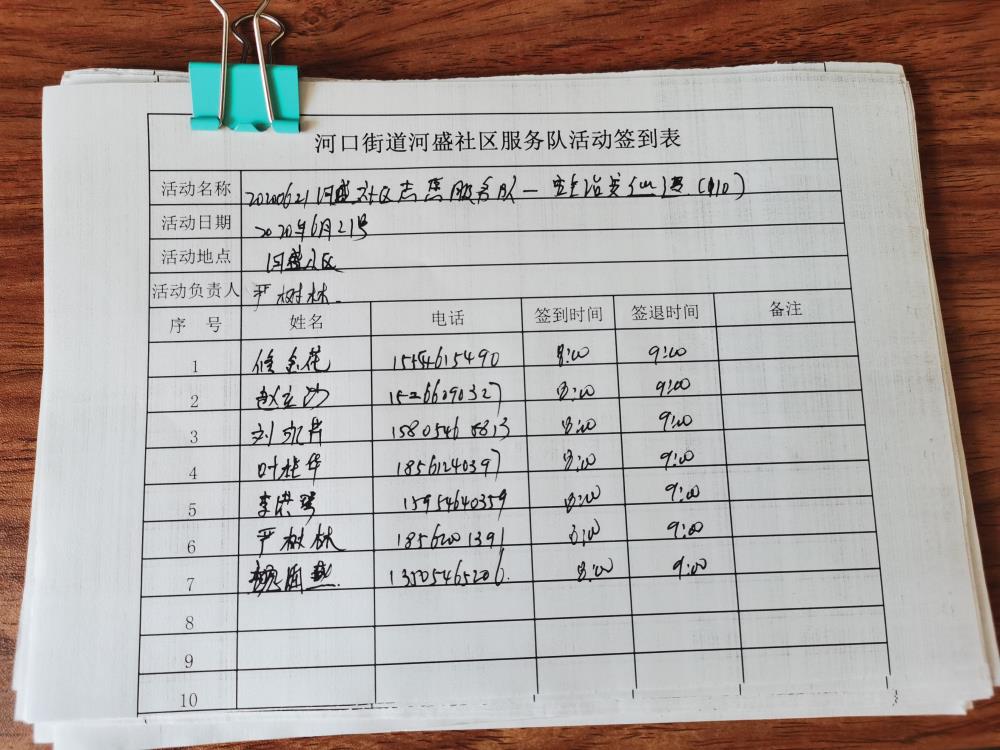 河口街道河盛社区服务队活动签到表
活动名称 20200621河盛社区志愿服务队一
活动日期 2020年6月21号
活动地点 河盛社区
活动负责人 严树林
序号 姓名 电话 签到时间 签退时间 备注
1 8:00 9:00
2 15266090327 8:00 9:00
3 15805465813 8:00 9:00
4 叶桂华 18561240397 8:00 9:00
5 15954640359 8:00 9:00
6 严树林 18562001391 8:00 9:00
7 13505465206. 8:00 9:00
8
9
10